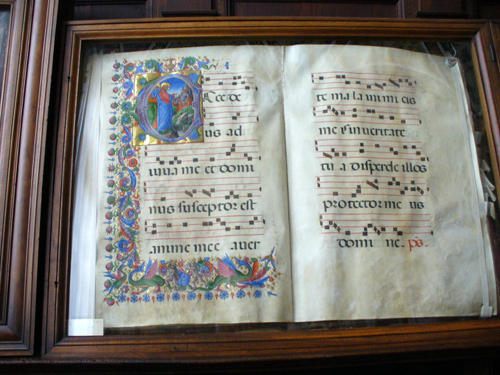 Ecce de
us ad
iuua me et domi
nus susceptor est
anime mee auer
te mala inimicis
meis in ueritate
tua disperde illos
protector meus
domine. ps.